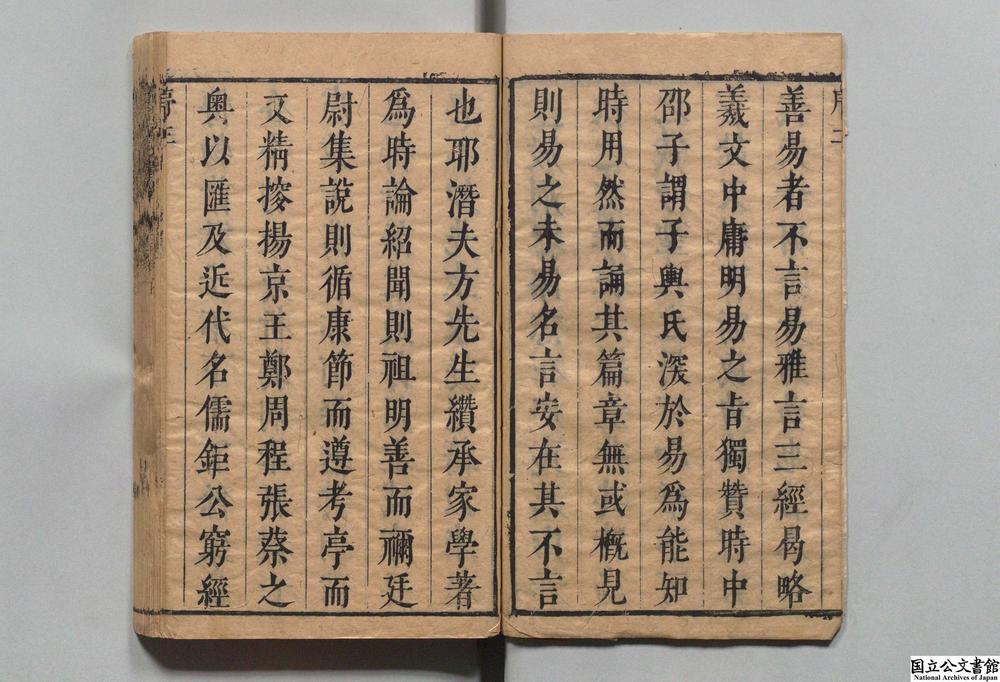 善易者不言易雅言三經曷略
羲文中庸明易之旨獨贊時中
邵子謂子輿氏深於易爲能知
時用然而誦其篇章無或概見
則易之未易名言安在其不言
也耶潛夫方先生纘承家學著
爲時論紹聞則祖明善而禰廷
尉集說則循康節而遵考亭而
又精接揚京王鄭周程張蔡之
奥以匯及近代名儒鉅公窮經
国立公文書館
National Archives of Japan